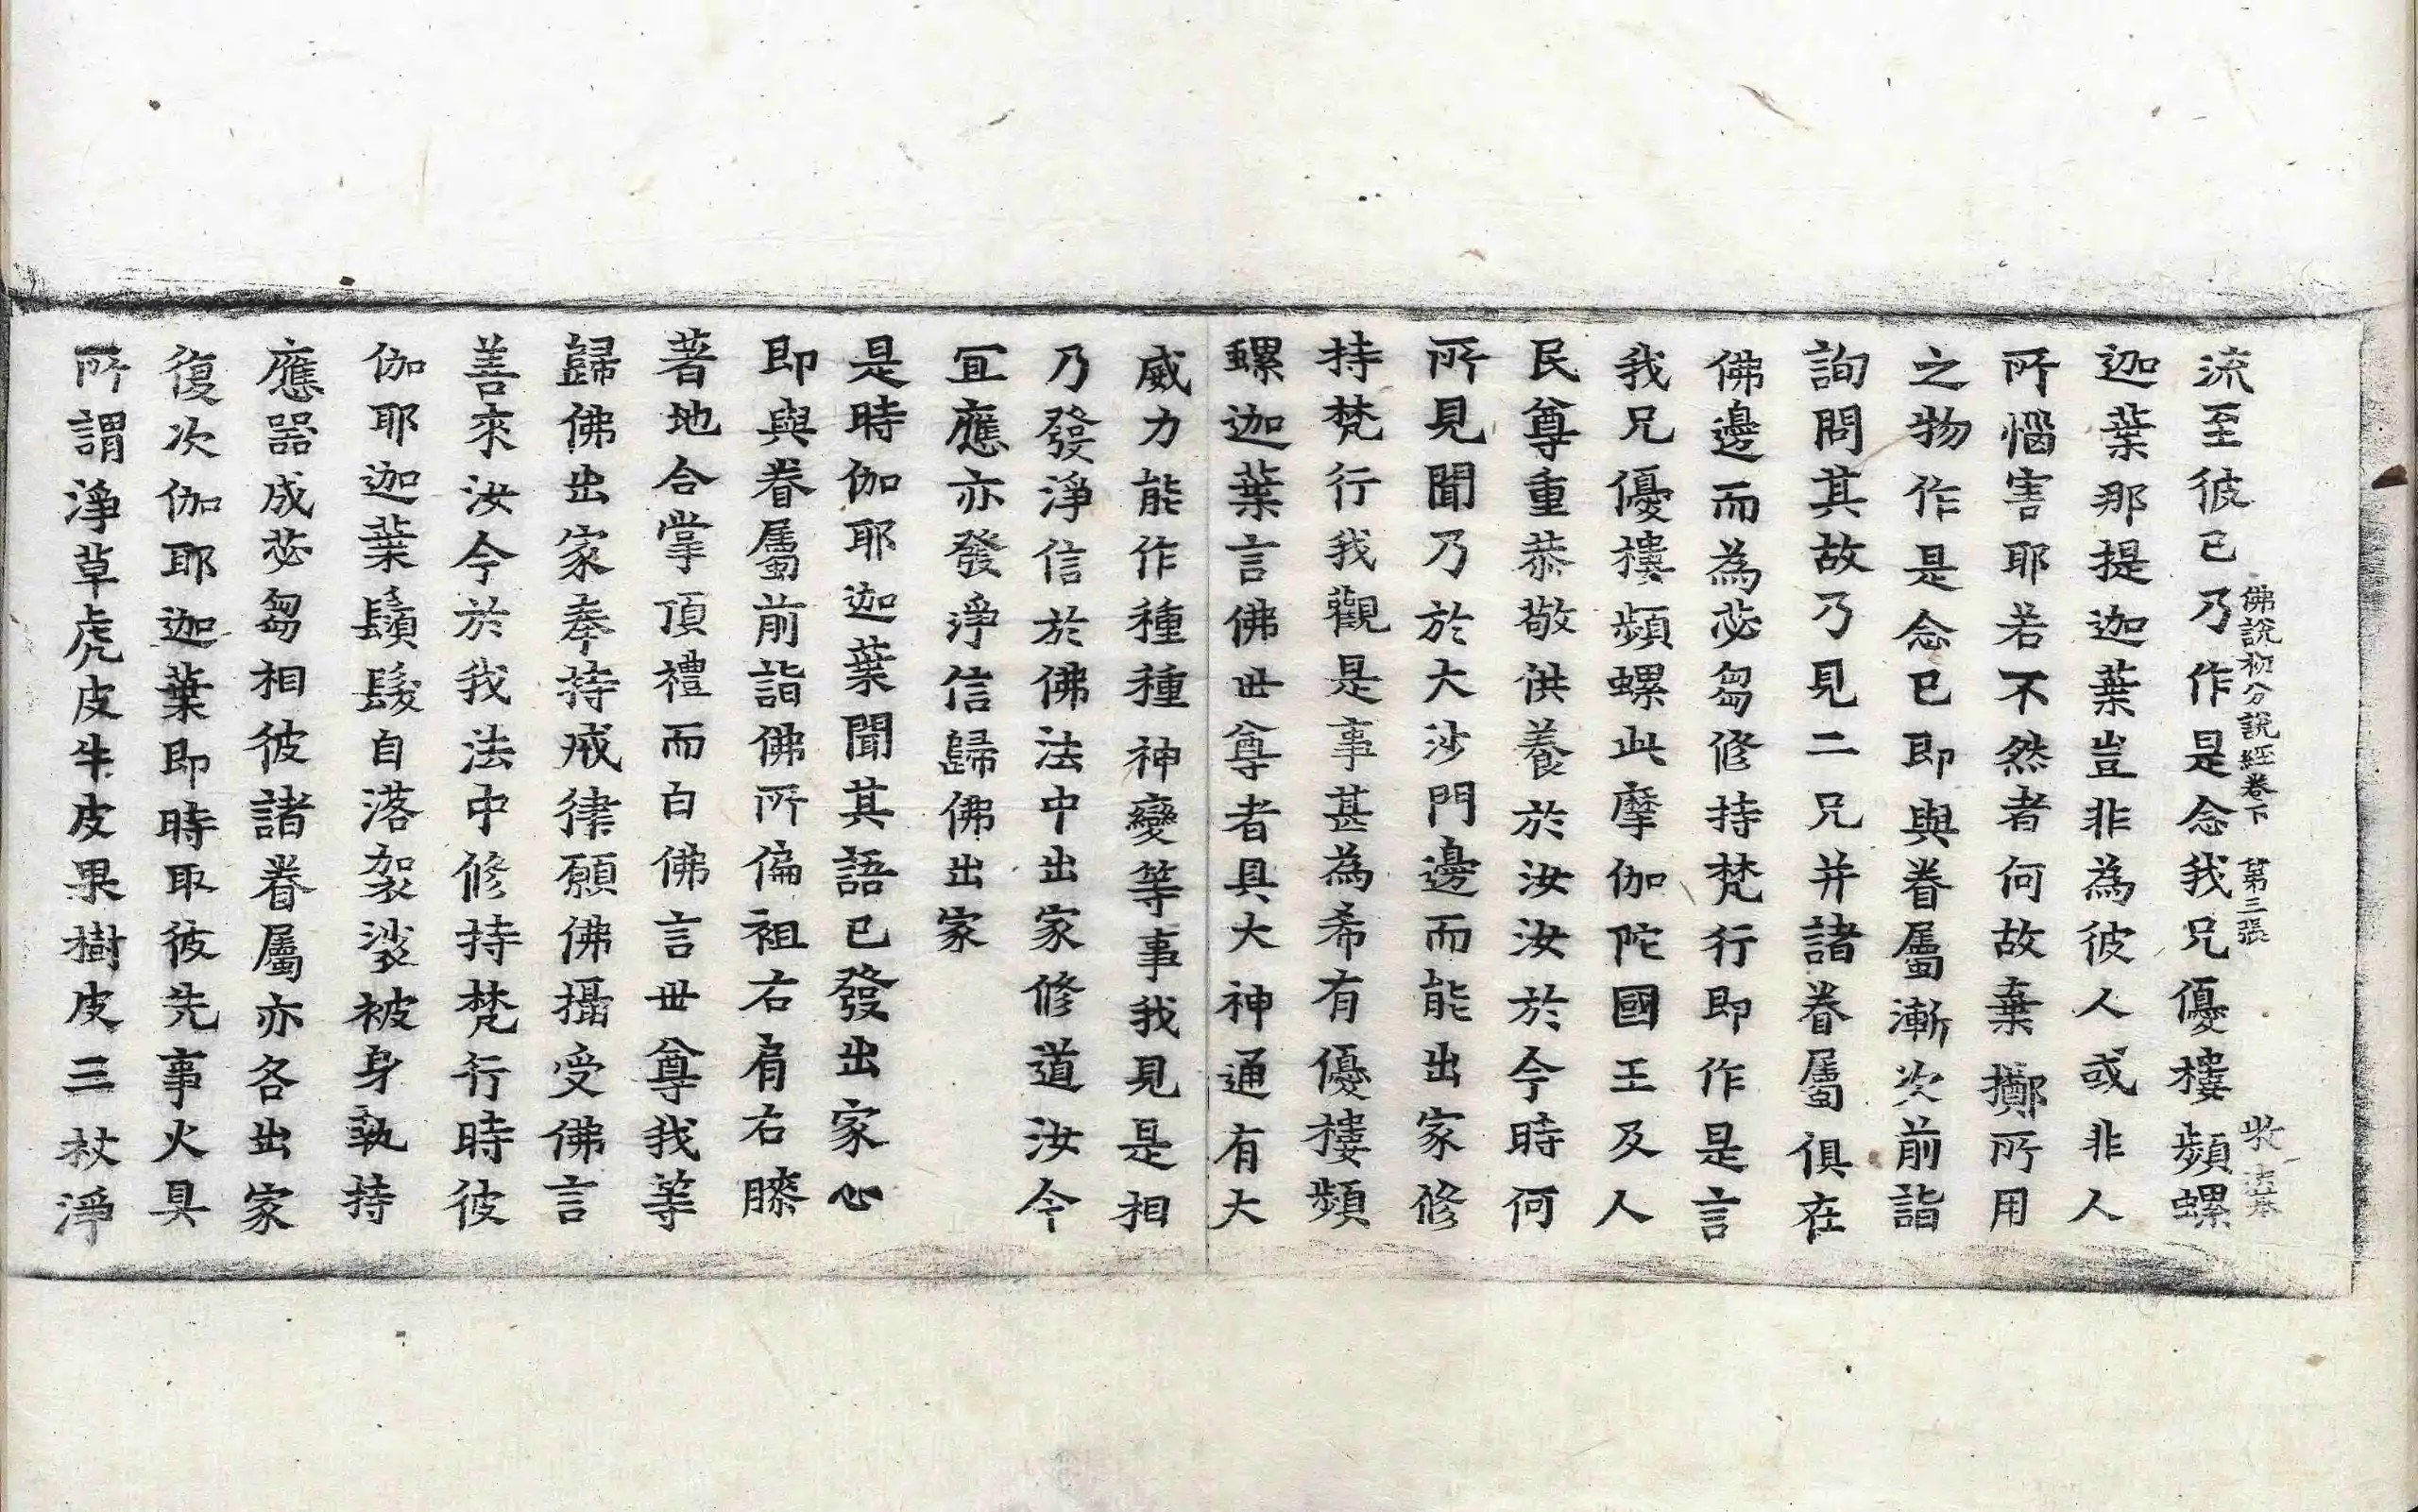 佛說初分說經卷下　第三張
流至彼已乃作是念我兄優樓頻螺
迦葉那提迦葉豈非為彼人或非人
所惱害耶若不然者何故棄擲所用
之物作是念已即與眷屬漸次前詣
詢問其故乃見二兄并諸眷屬俱在
佛邊而為苾芻修持梵行即作是言
我兄優樓頻螺此摩伽陀國王及人
民尊重恭敬供養於汝汝於今時何
所見聞乃於大沙門邊而能出家修
持梵行我觀是事甚為希有優樓頻
螺迦葉言佛世尊者具大神通有大
威力能作種種神變等事我見是相
乃發淨信於佛法中出家修道汝今
冝應亦發淨信歸佛出家
是時伽耶迦葉聞其語已發出家心
即與眷屬前詣佛所偏袒右肩右膝
著地合掌頂禮而白佛言世尊我等
歸佛出家奉持戒律願佛攝受佛言
善來汝今於我法中修持梵行時彼
伽耶迦葉鬚髮自落袈裟被身執持
應器成苾芻相彼諸眷屬亦各出家
復次伽耶迦葉即時取彼先事火具
所謂淨草虎皮牛皮果樹皮三杖淨